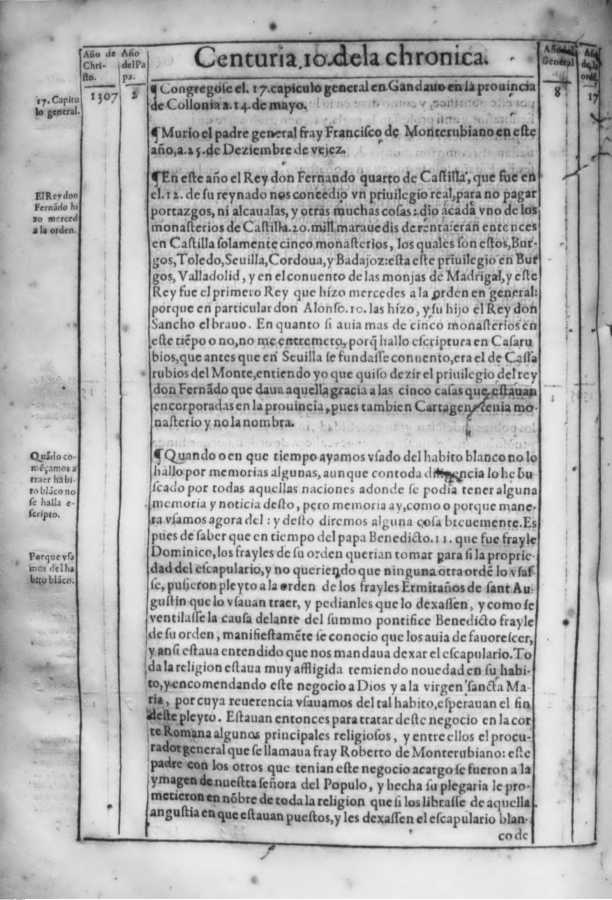 Centuria.10.dela chronica.
Año de Chri-
sto.
Año
del Pa
pa.
General
1307
2
8
17
17. Capitu
lo general.
¶ Congregose el. 17. capiculo general en Gandauo en la prouincia
de Collonia a. 14. de mayo.
¶ Murio el padre general fray Francisco de Monterubiano en este
año, a. 25. de Deziembre de vejez.
El Rey don
Fernãdo hi
zo merced
a la orden.
¶ En este año el Rey don Fernando quarto de Castilla, que fue en
el. 12. de su reynado nos concedio vn priuilegio real, para no pagar
portazgos, ni alcaualas, y otras muchas cosas: dio a cada vno de los
monasterios de Castilla. 20. mill marauedis de renta: eran entences
en Castilla solamente cinco monasterios, los quales son estos, Bur-
gos, Toledo, Seuilla, Cordoua, y Badajoz: esta este priuilegio en Bur
gos, Valladolid, y en el conuento de las monjas de Madrigal, y este
Rey fue el primero Rey que hizo mercedes a la orden en general:
porque en particular don Alonso. 10. las hizo, y su hijo el Rey don
Sancho el brauo. En quanto si auia mas de cinco monasterios en
este tiẽpo o no, no me entremeto, porq̃ hallo escriptura en Casaru
bios, que antes que en Seuilla se fundasse conuento, era el de Cassa
rubios del Monte, entiendo yo que quiso dezir el priuilegio del rey
don Fernãdo que daua aquella gracia a las cinco casas que estauan
encorporadas en la prouincia, pues tambien Cartagena tenia mo-
nasterio y no la nombra.
Quãdo co-
mẽçamos a
traer habi-
to blãco no
se halla e-
scripto.
¶ Quando o en que tiempo ayamos vsado del habito blanco no lo
hallo por memorias algunas, aunque con toda diligencia lo he bu-
scado por todas aquellas naciones adonde se podia tener alguna
memoria y noticia desto, pero memoria ay, como o porque mane-
ra vsamos agora del: y desto diremos alguna cosa breuemente. Es
pues de saber que en tiempo del papa Benedicto. 11. que fue frayle
Porque vsa
mos del ha
bito blãco.
Dominico, los frayles de su orden querian tomar para si la proprie-
dad del escapulario, y no queriendo que ninguna otra ordẽ lo vsas-
se, pusieron pleyto a la orden de los frayles Ermitaños de sant Au-
gustin que lo vsauan traer, y pedianles que lo dexassen, y como se
ventilasse la causa delante del summo pontifice Benedicto frayle
de su orden, manifiestamẽte se conocio que los auia de fauorescer,
y ansi estaua entendido que nos mandaua dexar el escapulario. To
da la religion estaua muy affligida temiendo nouedad en su habi-
to, y encomendando este negocio a Dios y a la virgen sancta Ma-
ria, por cuya reuerencia vsauamos del tal habito, esperauan el fin
deste pleyto. Estauan entonces para tratar deste negocio en la cor
te Romana algunos principales religiosos, y entre ellos el procu-
rador general que se llamaua fray Roberto de Monterubiano: este
padre con los otros que tenian este negocio a cargo se fueron a la
ymagen de nuestra señora del Populo, y hecha su plegaria le pro-
metieron en nõbre de toda la religion que si los librasse de aquella
angustia en que estauan puestos, y les dexassen el escapulario blan-
co de